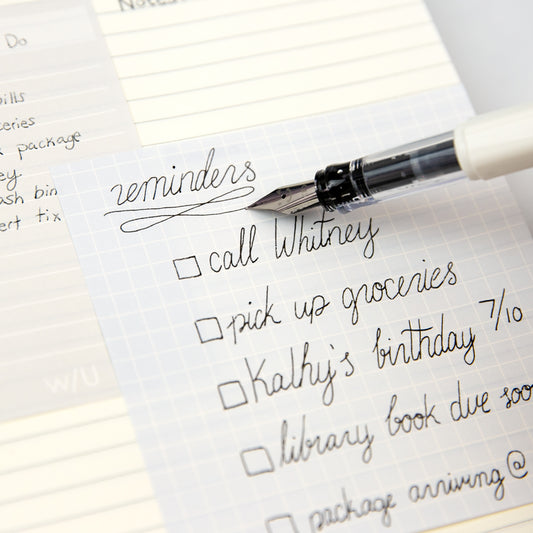 Notes
Do
bills
package
ert tix
W/U
reminders
call Whitney
pick up groceries
Kathy's birthday 7/10
library book due soo
package arriving @